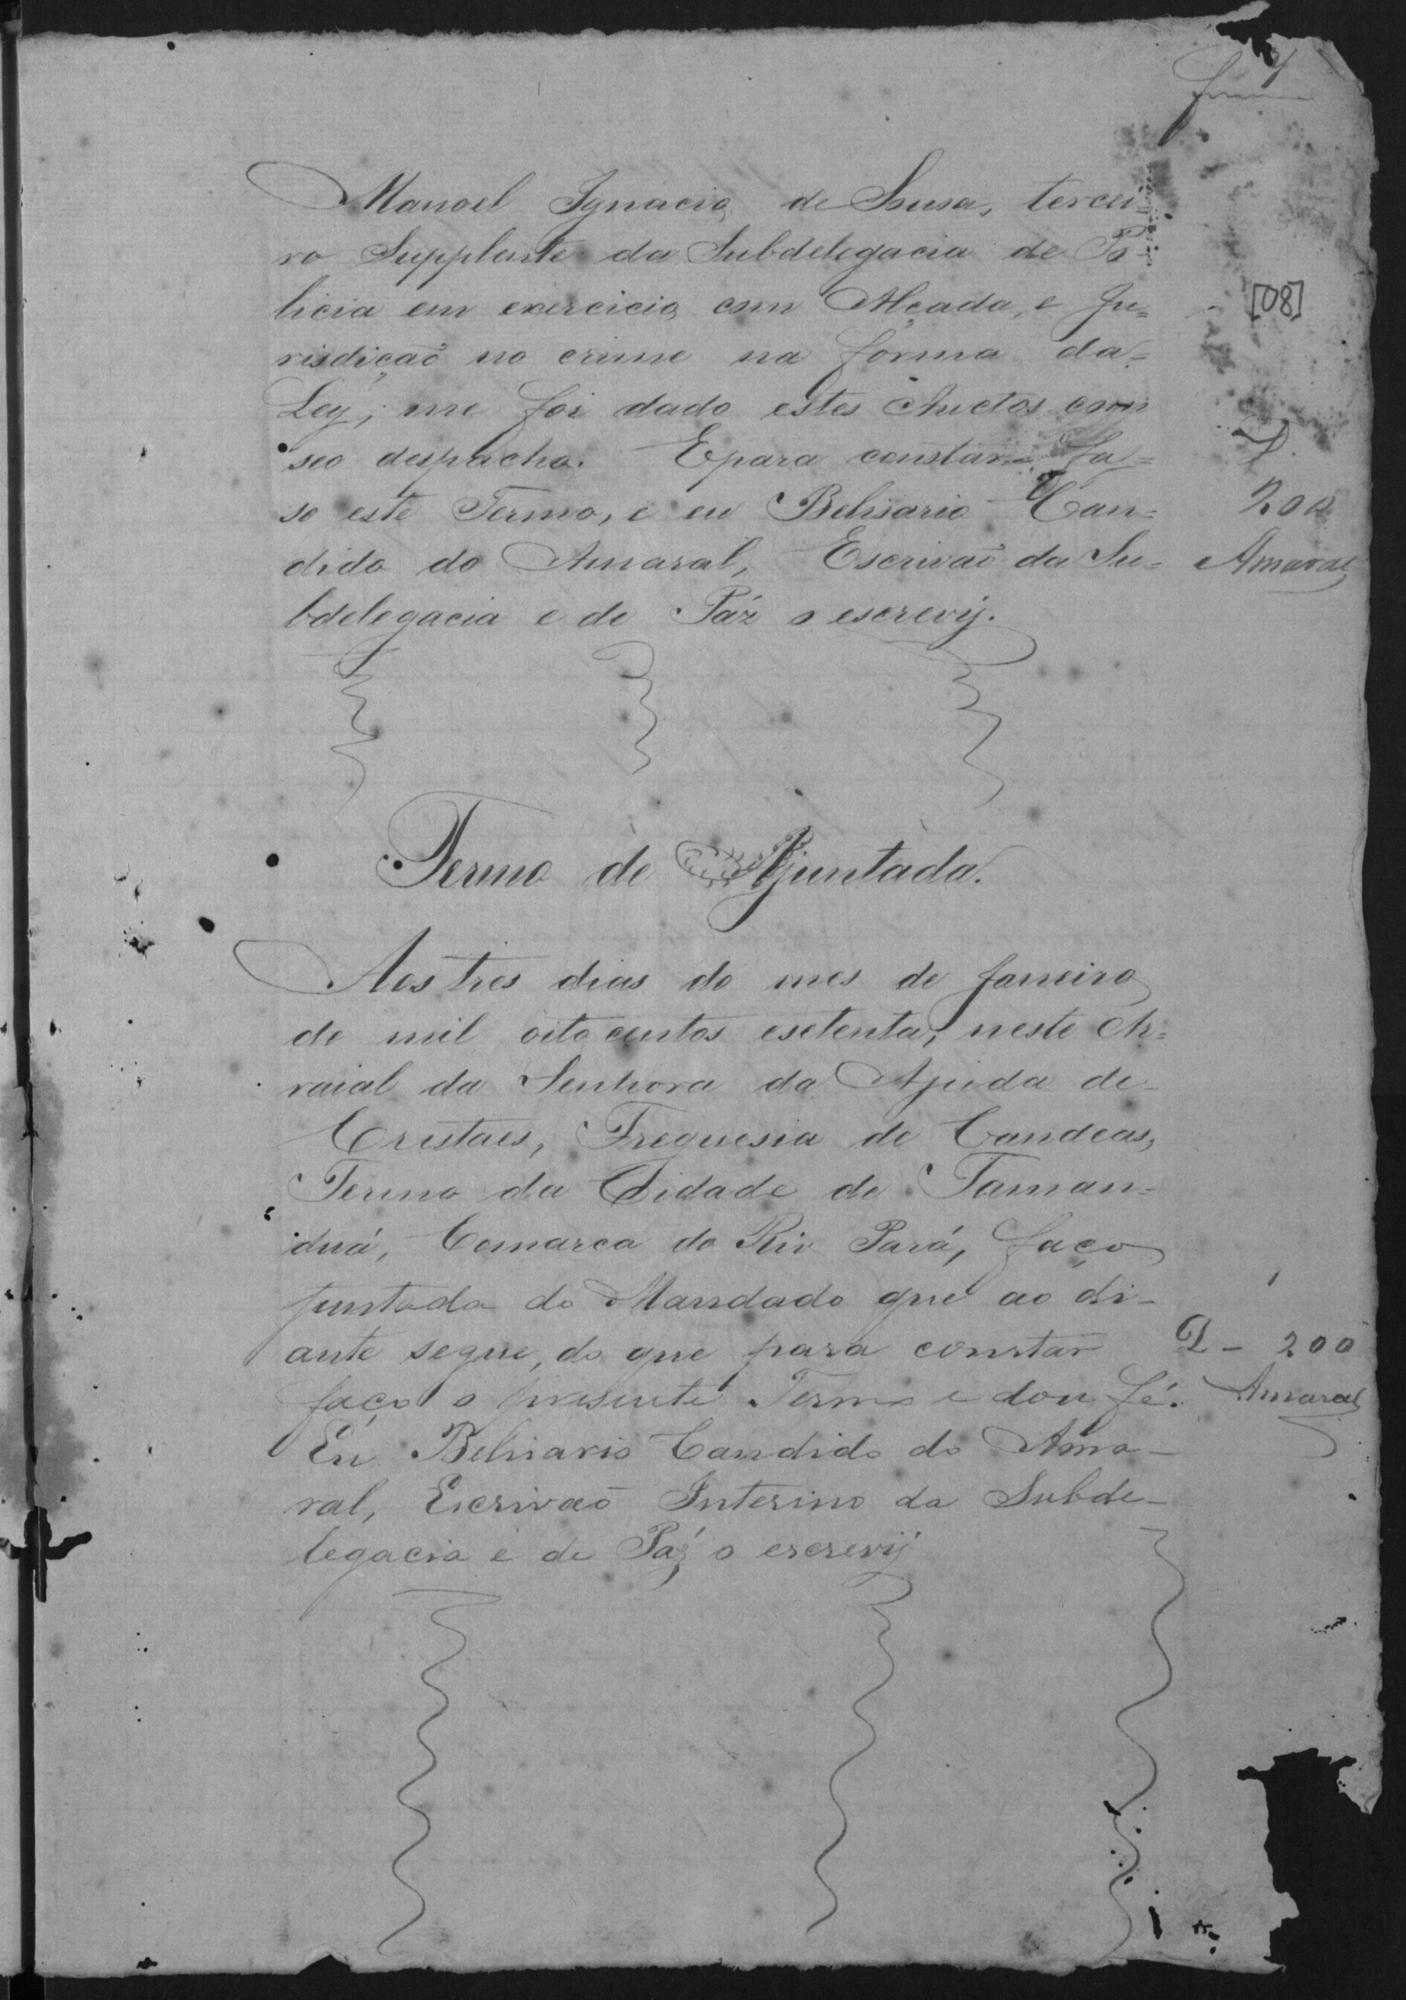 4
Manoel Ignacio de Sousa, tercei=
ro Supplente da Subdelegacia de Po=
licia em exercicio com Alçada, e Ju=
[08]
risdicaõ no crime na forma da=
Ley, me foi dado estes Auctos com
seo despacho. E para constar fa=
D.
so este Termo, e eu Belisario Can=
200
dido do Amaral, Escrivaõ da Su=
Amaral
bdelegacia e de Páz o escrevij.
Termo de Ajuntada.
Aos tres dias do mes de Janeiro
de mil oito centos esetenta, neste Ar=
raial da Senhora da Ajuda de
Cristaes, Freguesia de Candeas,
Termo da Cidade de Taman=
duá, Comarca do Rio Pará, faço
juntada do Mandado que ao di-
ante segue, do que para constar
D - 200
faço o presente Termo e dou fé.
Amaral
Eu Belisario Candido do Ama-
ral, Escrivaõ Interino da Subde-
legacia e de Páz o escrevij